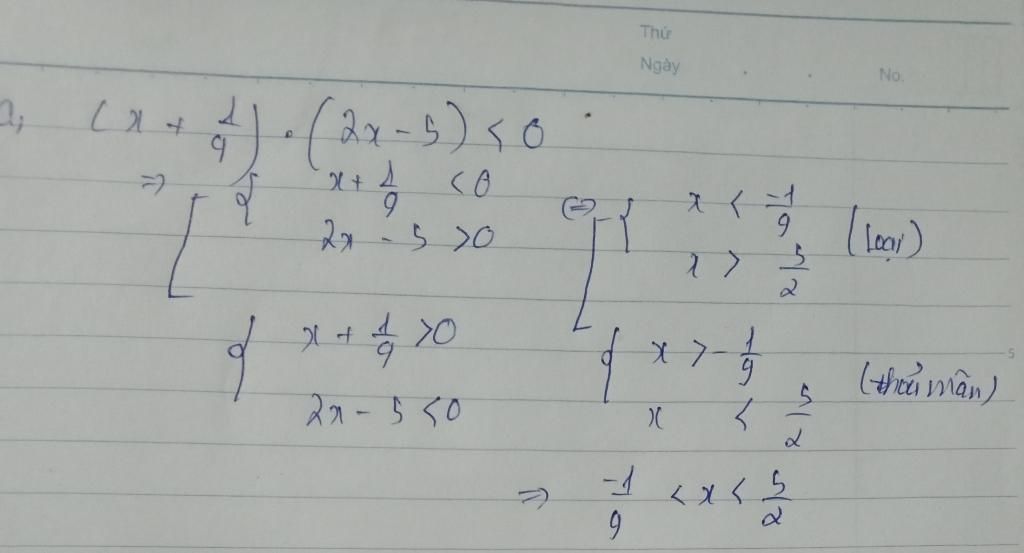 Thứ
Ngày . . No.
a, (x + 1/9) . (2x - 5) < 0
=> [ { x + 1/9 < 0
2x - 5 > 0
{ x + 1/9 > 0
2x - 5 < 0
<=> [ { x < -1/9
x > 5/2 (loại)
{ x > -1/9
x < 5/2 (thoả mãn)
=> -1/9 < x < 5/2
5